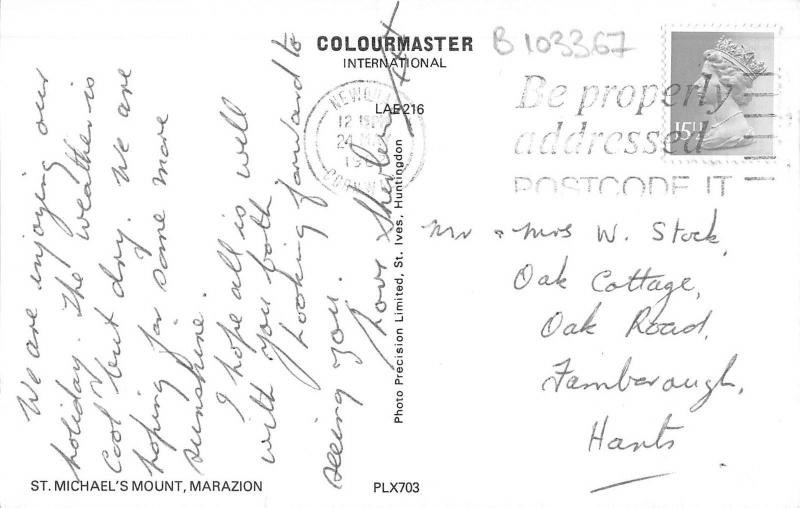 COLOURMASTER
INTERNATIONAL
LAE216
B 103367
Be properly
addressed
POSTCODE IT
NEWQUAY
12
24
19
CORNWALL
15½
We are enjoying our
holiday. The weather is
cool but dry. We are
hoping for some more
sunshine.
I hope all is well
with you both
Looking forward to
seeing you.
Love
Mr & Mrs W. Stock,
Oak Cottage,
Oak Road,
Farnborough,
Hants
Photo Precision Limited, St. Ives, Huntingdon
ST. MICHAEL'S MOUNT, MARAZION
PLX703